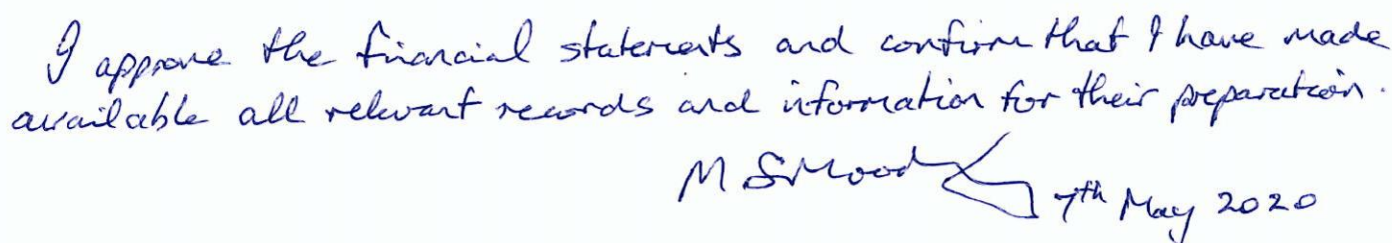 I approve the financial statements and confirm that I have made
available all relevant records and information for their preparation.
M S Moody 7th May 2020